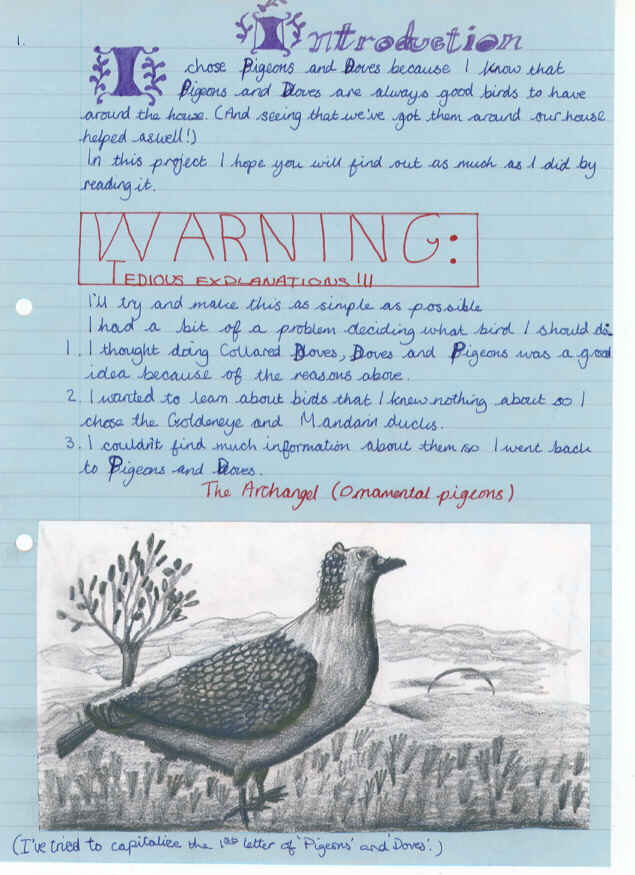 1.
Introduction
I chose Pigeons and Doves because I know that
Pigeons and Doves are always good birds to have
around the house. (And seeing that we've got them around our house
helped aswell!)
In this project I hope you will find out as much as I did by
reading it.
WARNING:
TEDIOUS EXPLANATIONS!!!
I'll try and make this as simple as possible
I had a bit of a problem deciding what bird I should do.
1. I thought doing Collared Doves, Doves and Pigeons was a good
idea because of the reasons above.
2. I wanted to learn about birds that I knew nothing about so I
chose the Goldeneye and Mandarin ducks.
3. I couldn't find much information about them so I went back
to Pigeons and Doves.
The Archangel (Ornamental pigeons)
(I've tried to capitalize the 1st letter of 'Pigeons' and 'Doves'.)